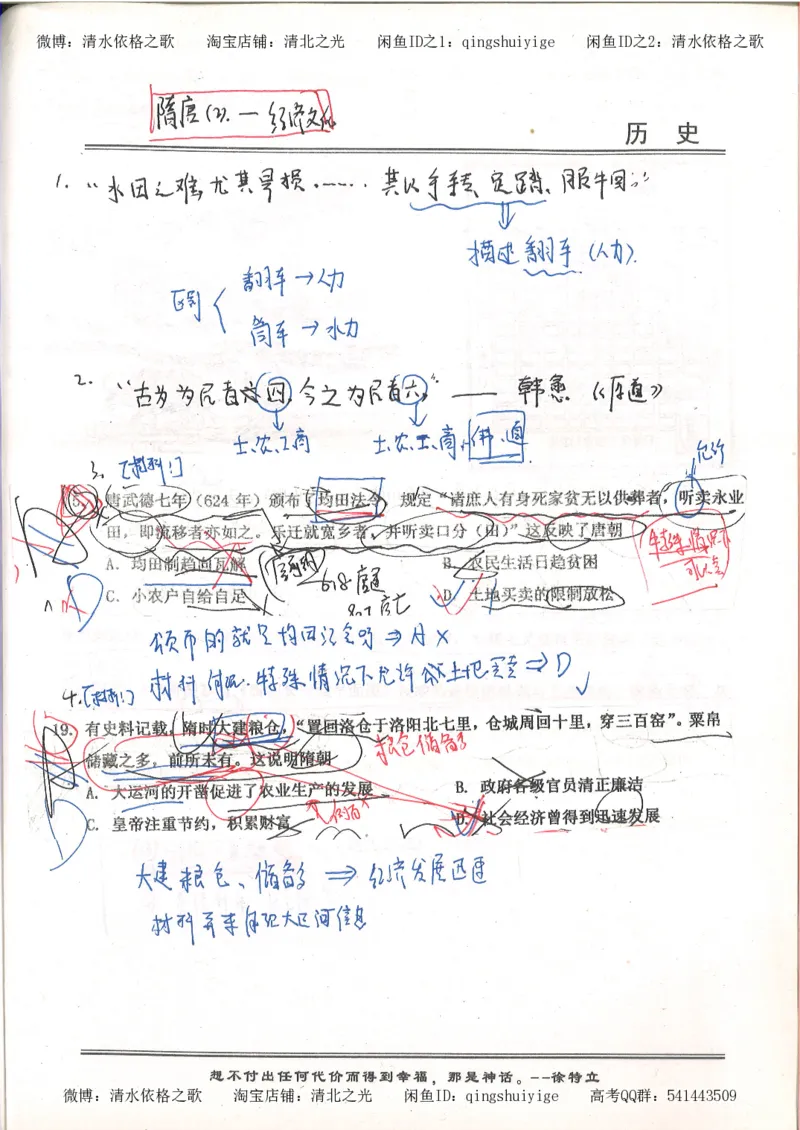 微博：清水依格之歌 淘宝店铺：清北之光 闲鱼ID之1：qingshuiyige 闲鱼ID之2：清水依格之歌
隋唐(2).一经济文化
历 史
1. “水田之难,尤其旱损……. 共以手转、足踏、服牛回”
描述翻车(人力).
区别
翻车→人力
筒车→水力
2. “古为为民者四,今之为民者六” —— 韩愈《原道》
士、农、工、商 士、农、工、商,佛、道
3.【材料!】
允许
15. 唐武德七年（624 年）颁布了均田法令，规定“诸庶人有身死家贫无以供葬者，听卖永业
田，即流移者亦如之。乐迁就宽乡者，并听卖口分（田）”这反映了唐朝
特殊情况下
A. 均田制趋向瓦解 B. 农民生活日趋贫困
618唐建
C. 小农户自给自足 D. 土地买卖的限制放松
907唐亡
颁布的就是均田法令吗 ⇒ A ×
材料体现:特殊情况下允许做土地买卖 ⇒ D √
4.【材料!】
19. 有史料记载，隋时大建粮仓，“置回洛仓于洛阳北七里，仓城周回十里，穿三百窖”。粟帛
粮仓储备多
储藏之多，前所未有。这说明隋朝
A. 大运河的开凿促进了农业生产的发展 B. 政府各级官员清正廉洁
C. 皇帝注重节约，积累财富 D. 社会经济曾得到迅速发展
大建粮仓、储备多 ⇒ 经济发展迅速
材料并未体现大运河信息
想不付出任何代价而得到幸福，那是神话。--徐特立
微博：清水依格之歌 淘宝店铺：清北之光 闲鱼ID：qingshuiyige 高考QQ群：541443509